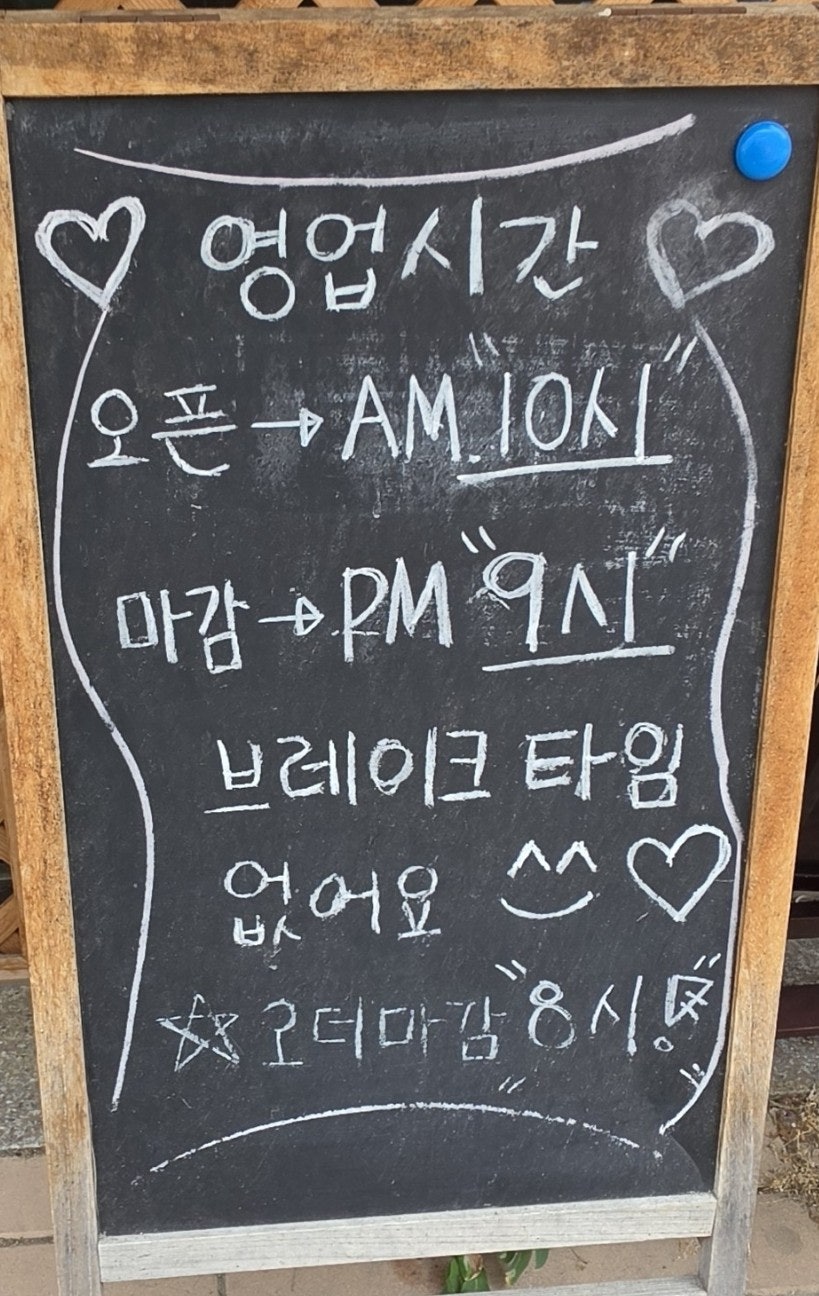 영업시간
오픈 → AM "10시"
마감 → PM "9시"
브레이크 타임
없어요 ^^ ♡
☆ 오더마감 "8시!"